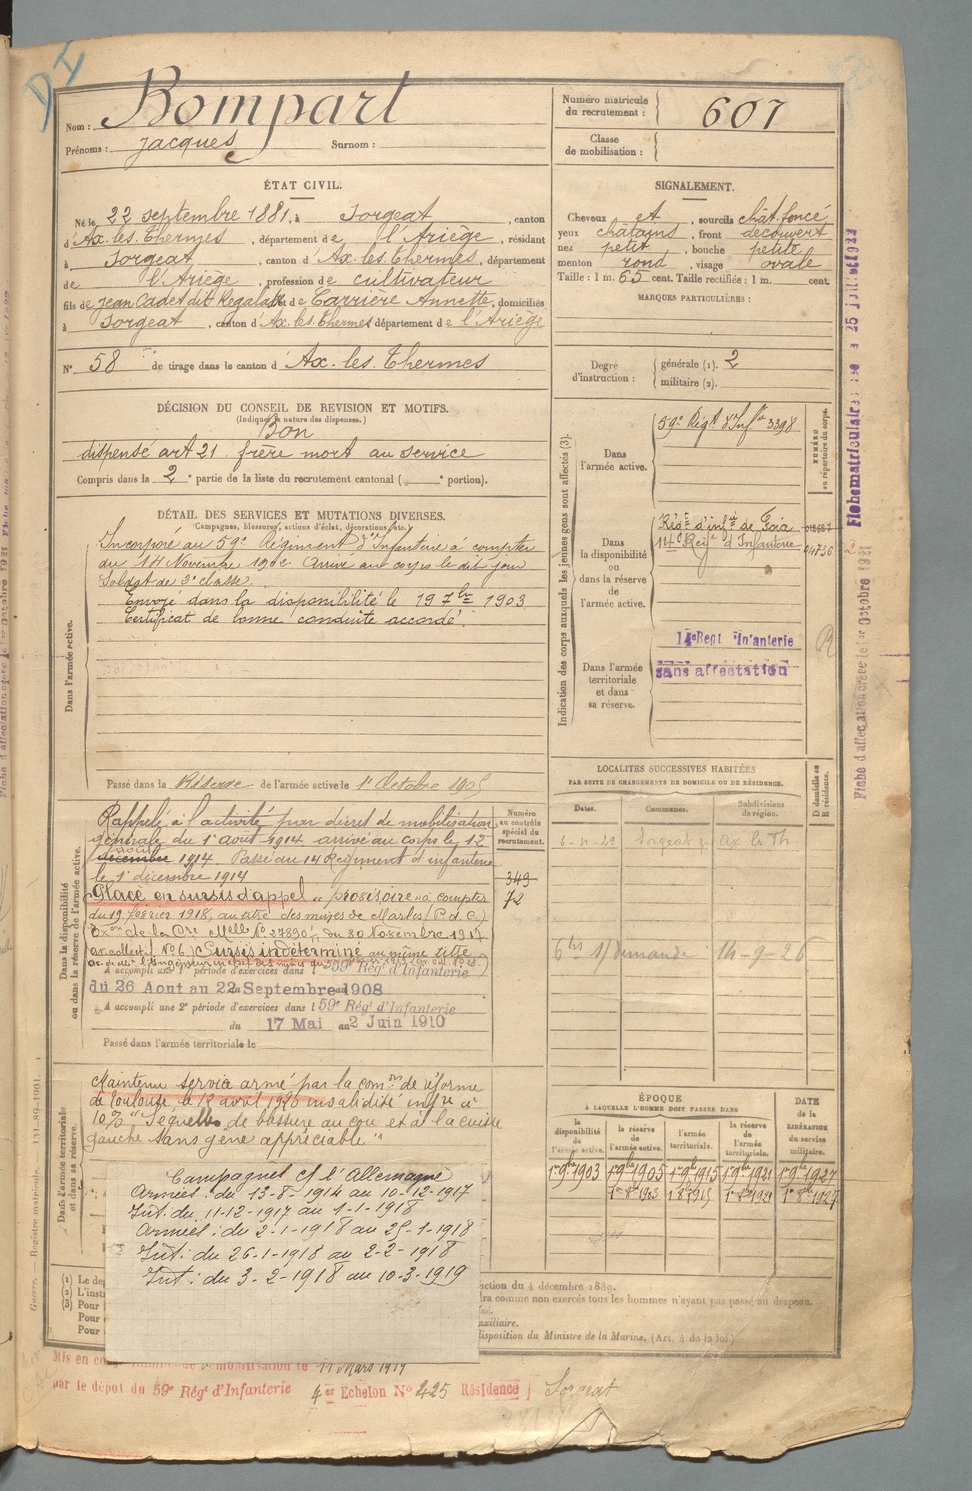 D I
Nom : Bompart
Prénoms : Jacques Surnom :
Numéro matricule du recrutement : 607
Classe de mobilisation :
ÉTAT CIVIL.
Né le 22 septembre 1881, à Sorgeat, canton
d'Ax-les-Thermes, département de l'Ariège, résidant
à Sorgeat, canton d'Ax-les-Thermes, département
de l'Ariège, profession de cultivateur
fils de Jean Cadet dit Regalat et de Carrière Annette, domiciliés
à Sorgeat, canton d'Ax-les-Thermes département de l'Ariège
N° 58 de tirage dans le canton d'Ax-les-Thermes
SIGNALEMENT.
Cheveux et, sourcils chât. foncé
yeux chatains, front découvert
nez petit, bouche petite
menton rond, visage ovale
Taille : 1 m. 65 cent. Taille rectifiée : 1 m. cent.
MARQUES PARTICULIÈRES :
Degré d'instruction : générale (1). 2
militaire (2).
DÉCISION DU CONSEIL DE REVISION ET MOTIFS.
(Indiquer la nature des dispenses.)
Bon
dispensé art 21 frère mort au service
Compris dans la 2e partie de la liste du recrutement cantonal ( e portion).
DÉTAIL DES SERVICES ET MUTATIONS DIVERSES.
(Campagnes, blessures, actions d'éclat, décorations, etc.)
Dans l'armée active.
Incorporé au 59e Régiment d'Infanterie à compter
du 14 Novembre 1902. Arrivé au corps le dit jour
Soldat de 2e classe.
Envoyé dans la disponibilité le 19 7bre 1903
Certificat de bonne conduite accordé.
Passé dans la Réserve de l'armée active le 1er Octobre 1905
Indication des corps auxquels les jeunes gens sont affectés (3).
NUMÉRO au répertoire du corps.
Dans l'armée active.
59e Régt d'Infie 3398
Dans la disponibilité ou dans la réserve de l'armée active.
Régt d'infie de Foix
Régt d'Infanterie
Dans l'armée territoriale et dans sa réserve.
14e Regt Infanterie
sans affectation
Fiche matriculaire 25 juillet 1922
Fiche d'affectation créée le 1er Octobre 1921
LOCALITÉS SUCCESSIVES HABITÉES
PAR SUITE DE CHANGEMENTS DE DOMICILE OU DE RÉSIDENCE.
Dates. Communes. Subdivisions de région. D domicile ou R résidence.
Sorgeat Ax les Th
14-9-26
Dans la disponibilité ou dans la réserve de l'armée active.
Numéro au contrôle spécial du recrutement.
349
72
Rappelé à l'activité par décret de mobilisation
générale du 1er août 1914 arrivé au corps le 12
décembre août 1914. Passé au 14 Régiment d'infanterie
le 1er décembre 1914
Placé en sursis d'appel "provisoire" à compter
du 19 février 1918, au titre des mines de Marles (P. d. C.)
du 30 Novembre 1917
Sursis indéterminé au même titre
A accompli une 1re période d'exercices dans le 59e Régt d'Infanterie
du 26 Aout au 22 Septembre 1908
A accompli une 2e période d'exercices dans le 59e Régt d'Infanterie
du 17 Mai au 2 Juin 1910
Passé dans l'armée territoriale le
Dans l'armée territoriale et dans sa réserve.
Maintenu service armé par la comon de réforme
de Toulouse le 12 avril 1926 invalidité infre à
10% "Séquelles de blessure au cou et à la cuisse
gauche sans gêne appréciable"
Campagnes c/ l'Allemagne
Armées : du 13-8-1914 au 10-12-1917
Int: du 11-12-1917 au 1-1-1918
Armées : du 2-1-1918 au 25-1-1918
Int: du 26-1-1918 au 2-2-1918
Int: du 3-2-1918 au 10-3-1919
ÉPOQUE
À LAQUELLE L'HOMME DOIT PASSER DANS
la disponibilité de l'armée active. la réserve de l'armée active. l'armée territoriale. la réserve de l'armée territoriale.
DATE de la LIBÉRATION du service militaire.
1er 9bre 1903 1er 9bre 1905 1er 9bre 1915 1er 9bre 1921 1er 9bre 1927
(1) Le de
(2) L'inst
(3) Pour
Pour
Pour
ction du 4 décembre 1889.
dra comme non exercés tous les hommes n'ayant pas passé au drapeau.
auxiliaire.
disposition du Ministre de la Marine. (Art. 4 de la loi)
Guerre. — Registre matricule. 131-89-1901.
Mis en congé de Démobilisation le 11 Mars 1919
par le dépot du 59e Régt d'Infanterie 4er Echelon N° 425 Résidence Sorgeat